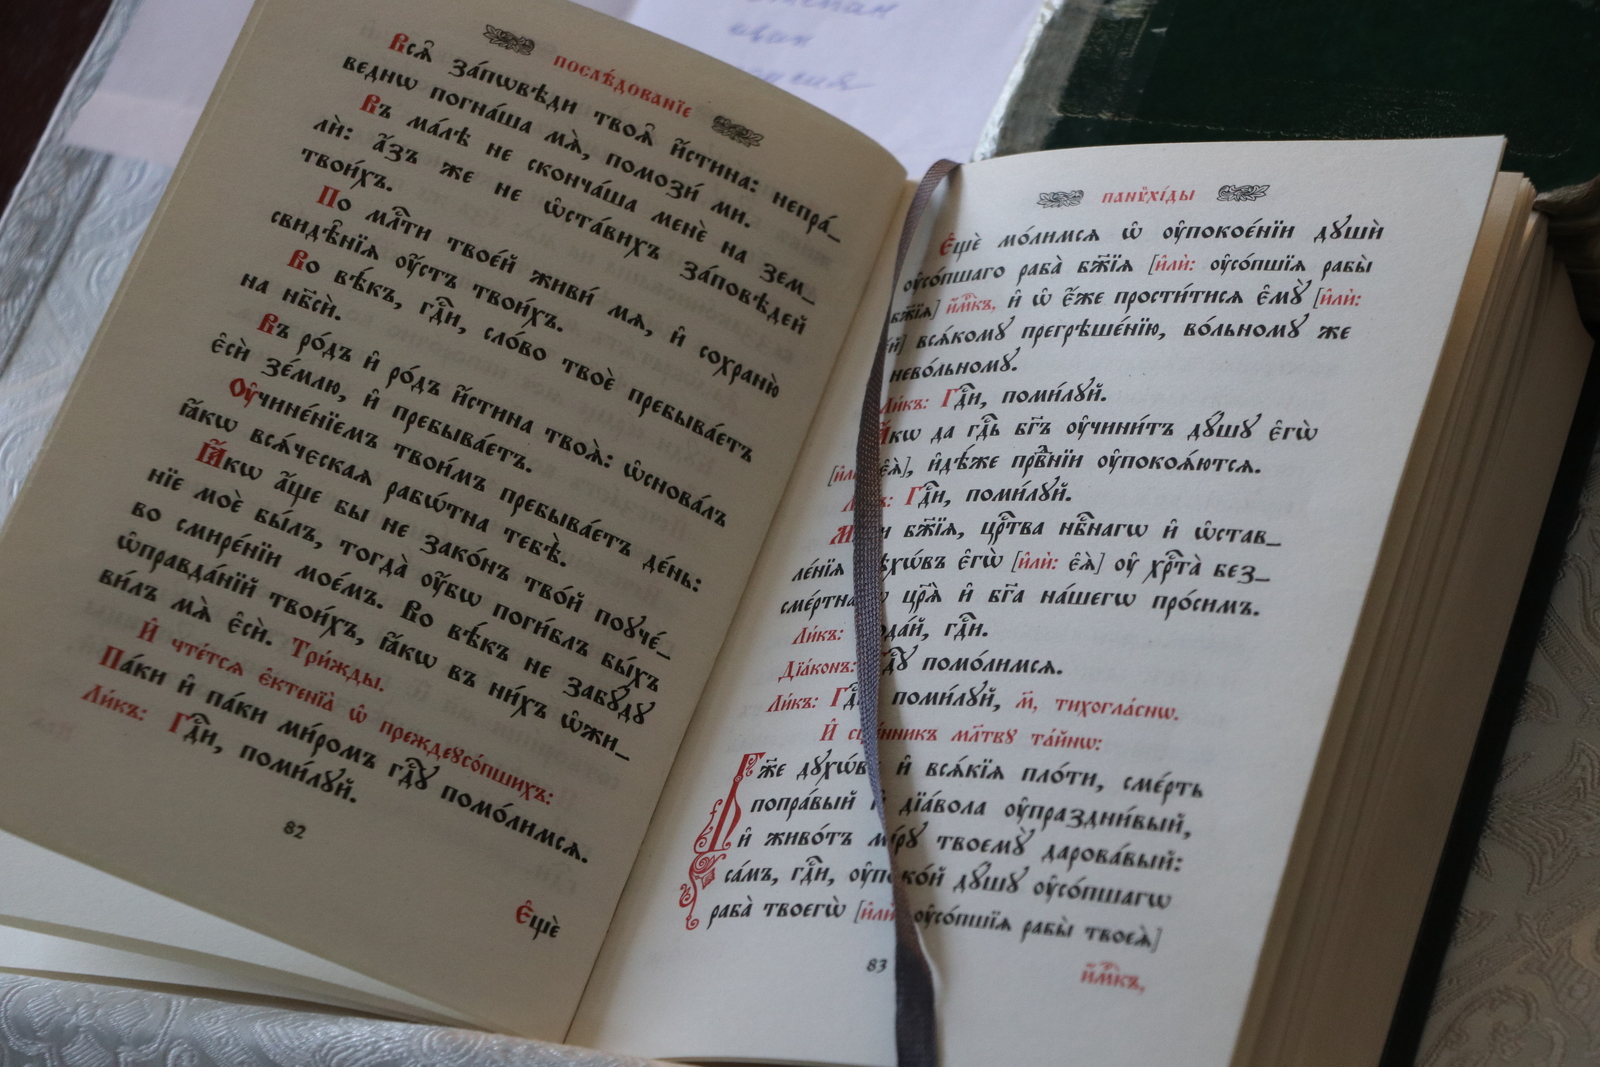 послѣ́дованїе
Всѧ̑ за́пѡвѣди твоѧ̑ и҆́стина: непра́_
веднѡ погна́ша мѧ̀, помози́ ми.
Въ ма́лѣ не сконча́ша менѐ на зем_
лѝ: а҆́зъ же не ѡ҆ста́вихъ за́повѣдей
твои́хъ.
По мл҇ти твое́й живи́ мѧ, и҆ сохраню̀
свидѣ̑нїѧ ᲂу҆́стъ твои́хъ.
Во вѣ́къ, гдⷭ҇и, сло́во твоѐ пребыва́етъ
на нб҃сѝ.
Въ ро́дъ и҆ ро́дъ и҆́стина твоѧ̀: ѡ҆снова́лъ
є҆сѝ зе́млю, и҆ пребыва́етъ.
Оу҆чине́нїемъ твои́мъ пребыва́етъ де́нь:
ꙗ҆́кѡ всѧ́ческаѧ рабѡ́тна тебѣ̀.
Ꙗ҆́кѡ а҆́ще бы не зако́нъ тво́й поꙋче́_
нїе моѐ бы́лъ, тогда̀ ᲂу҆́бѡ поги́блъ бы́хъ
во смире́нїи мое́мъ. Во вѣ́къ не забꙋ́дꙋ
ѡ҆правда́нїй твои́хъ, ꙗ҆́кѡ въ ни́хъ ѡ҆жи_
ви́лъ мѧ̀ є҆сѝ. Три́жды.
И҆ чте́тсѧ є҆ктенїа̀ ѡ҆ преждеꙋсо́пшихъ:
Па́ки и҆ па́ки ми́ромъ гдⷭ҇ꙋ помо́лимсѧ.
Ли́къ: Гдⷭ҇и, поми́лꙋй.
82
Є҆щѐ
панѷхі́ды
Є҆щѐ мо́лимсѧ ѡ҆ ᲂу҆покое́нїи дꙋшѝ
ᲂу҆со́пшаго раба̀ бж҃їѧ [и҆лѝ: ᲂу҆со́пшїѧ рабы̀
бж҃їѧ] и҆́м҃къ, и҆ ѡ҆ є҆́же прости́тисѧ є҆мꙋ̀ [и҆лѝ:
всѧ́комꙋ прегрѣше́нїю, во́льномꙋ же
нево́льномꙋ.
Ли́къ: Гдⷭ҇и, поми́лꙋй.
да гдⷭ҇ь бг҃ъ ᲂу҆чини́тъ дꙋ́шꙋ є҆гѡ̀
и҆дѣ́же првⷣнїи ᲂу҆поко́ѧютсѧ.
Гдⷭ҇и, поми́лꙋй.
бж҃їѧ, црⷭ҇тва нбⷭ҇нагѡ и҆ ѡ҆став_
ле́нїѧ є҆гѡ̀ [и҆лѝ: є҆ѧ̀] ᲂу҆ хрⷭ҇та̀ без_
сме́ртнаго цр҃ѧ̀ и҆ бг҃а на́шегѡ про́симъ.
Ли́къ: гдⷭ҇и.
Дїа́конъ: помо́лимсѧ.
Ли́къ: Гдⷭ҇и, поми́лꙋй, м҃, тихогла́снѡ.
И҆ сщ҃е́нникъ мл҃твꙋ та́йнѡ:
Бж҃е дꙋхѡ́въ и҆ всѧ́кїѧ пло́ти, сме́рть
попра́вый и҆ дїа́вола ᲂу҆праздни́вый,
и҆ живо́тъ мі́рꙋ твоемꙋ̀ дарова́вый:
са́мъ, гдⷭ҇и, ᲂу҆поко́й дꙋ́шꙋ ᲂу҆со́пшагѡ
раба̀ твоегѡ̀ [и҆лѝ ᲂу҆со́пшїѧ рабы̀ твоеѧ̀]
83
и҆́м҃къ,